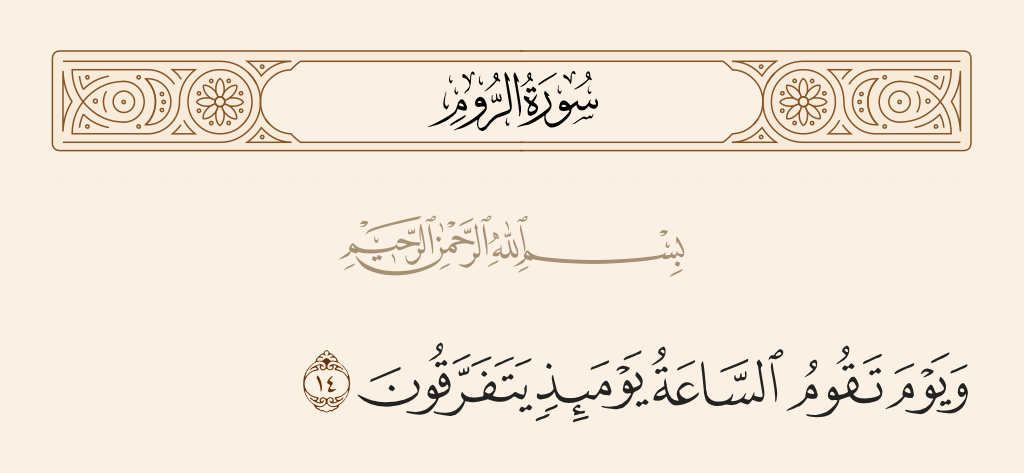 سُورَةُ الرُّومِ
بِسْمِ ٱللَّهِ ٱلرَّحْمَٰنِ ٱلرَّحِيمِ
وَيَوْمَ تَقُومُ ٱلسَّاعَةُ يَوْمَئِذٍ يَتَفَرَّقُونَ ١٤